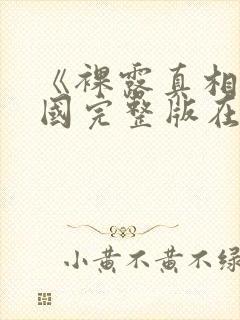 《裸露真相
国完整版在
小黄不黄不绿